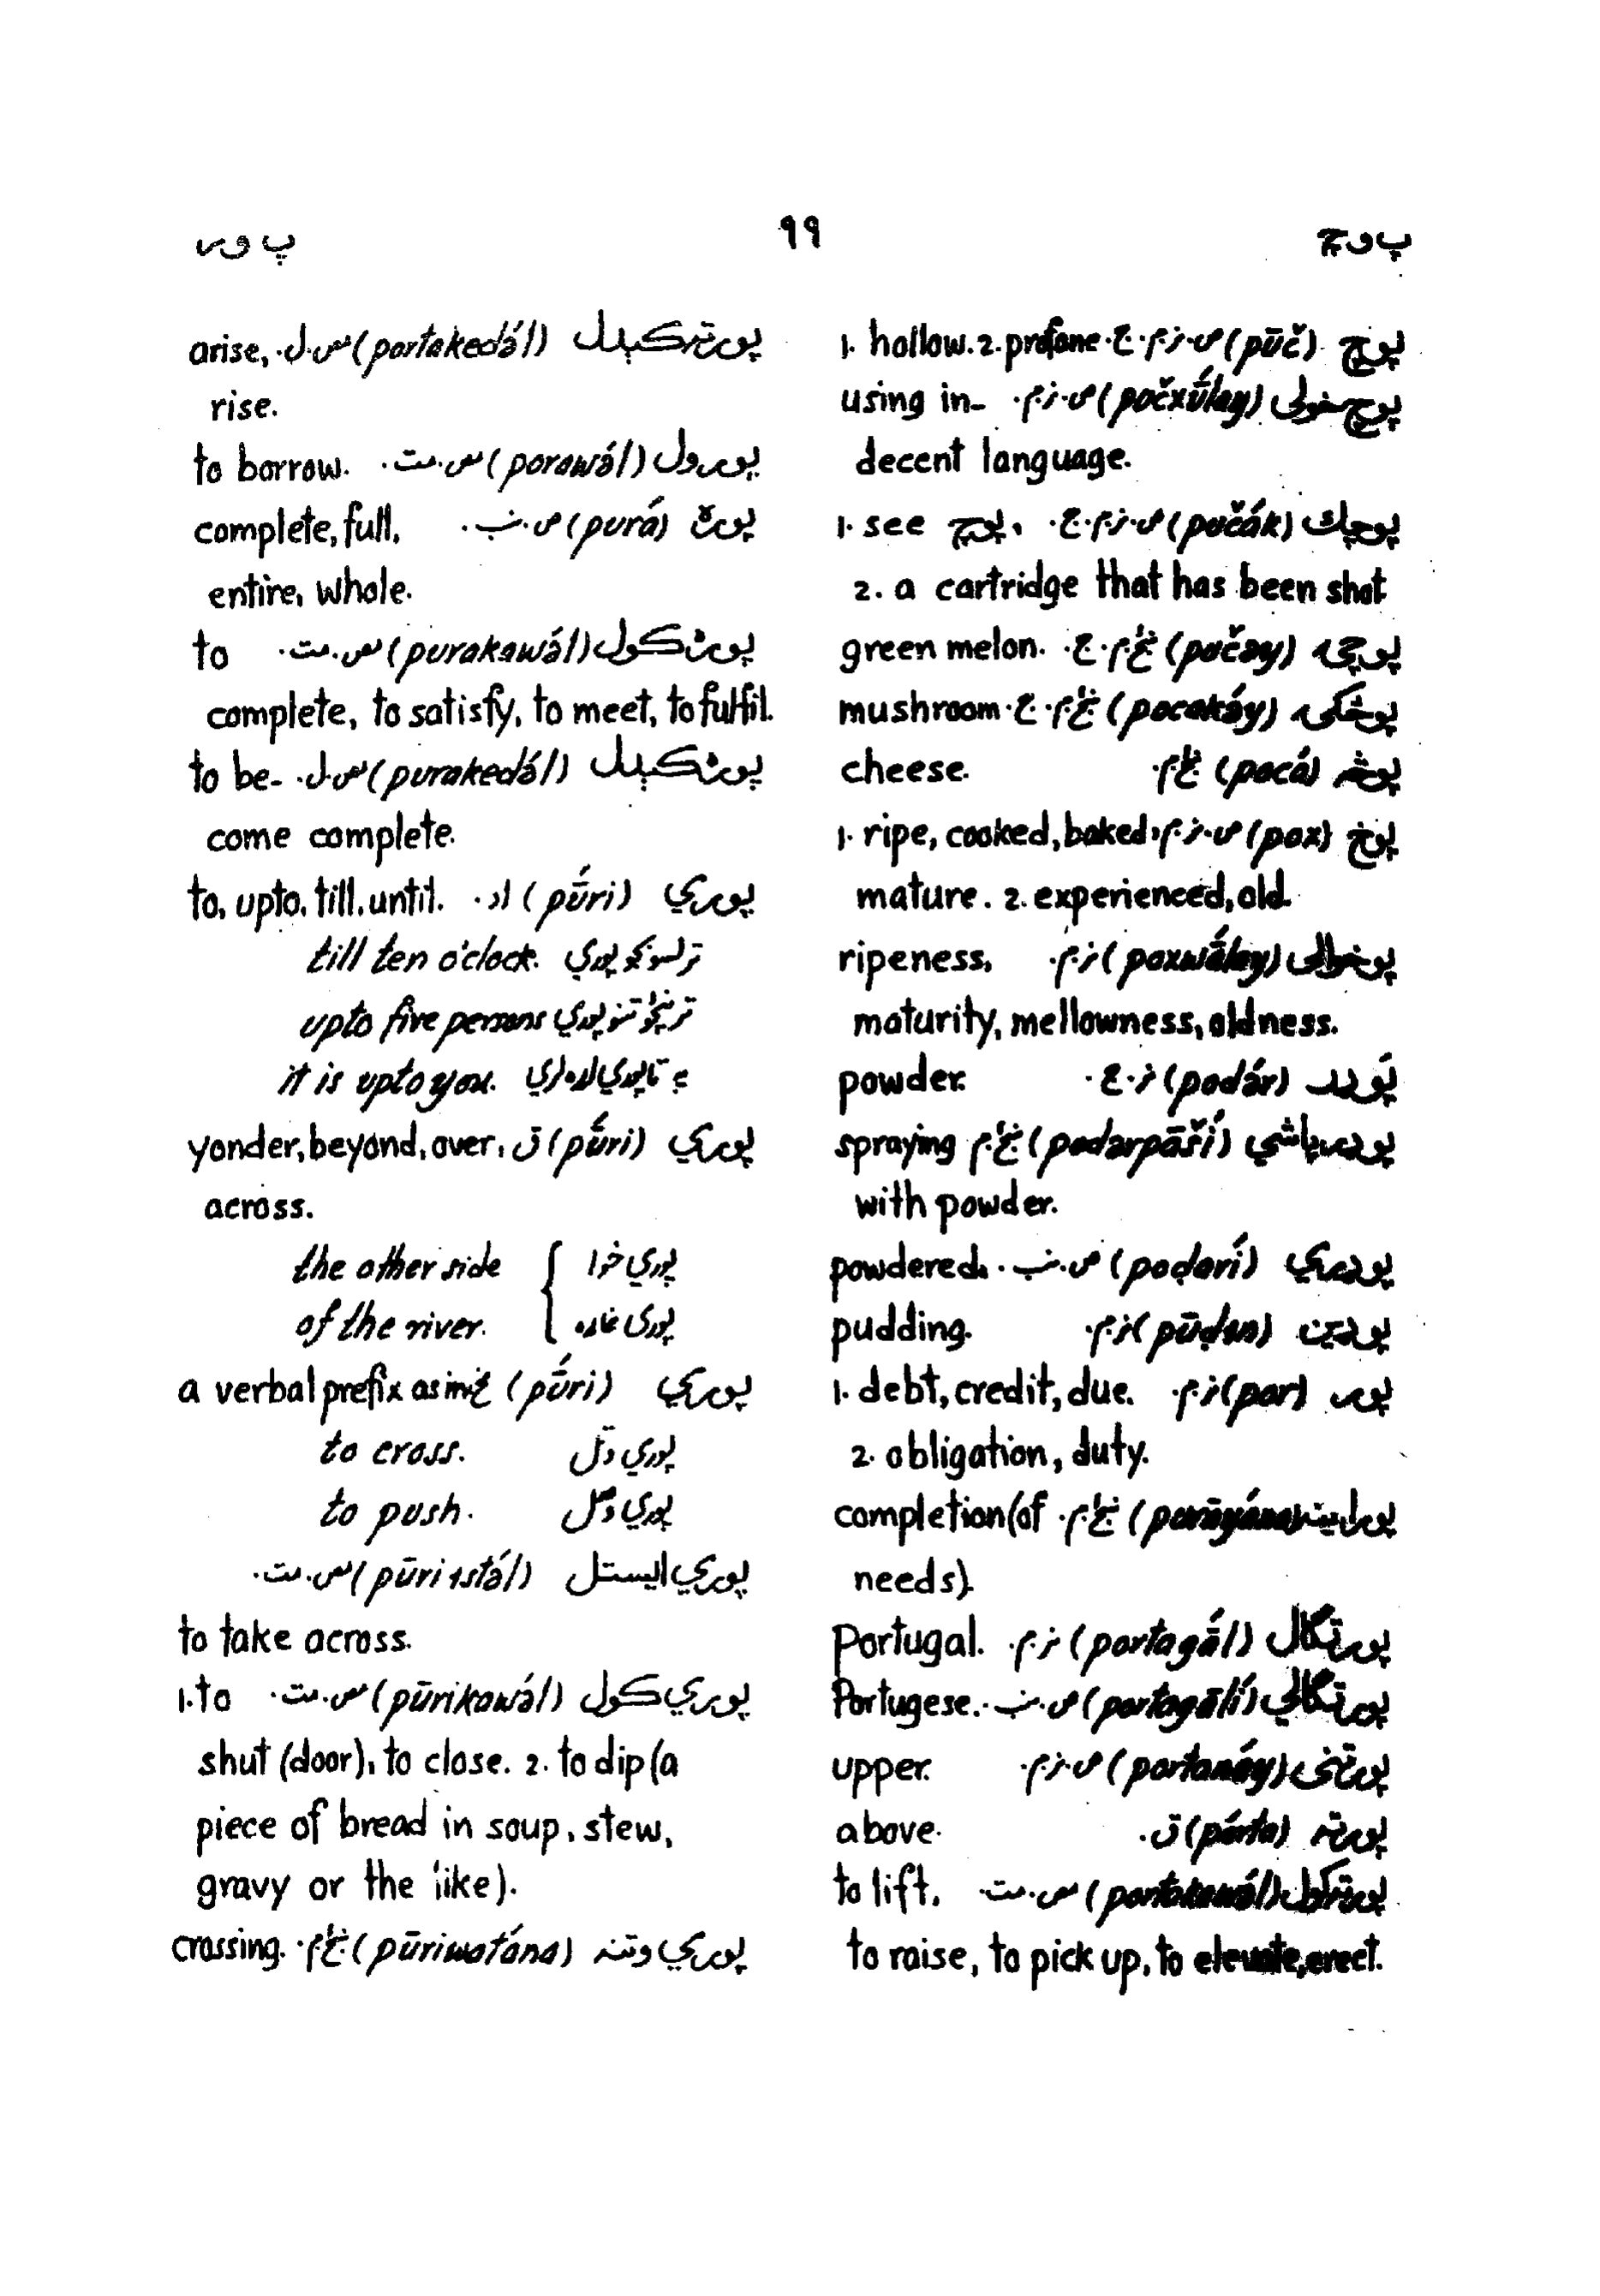 پ و چ
۹۹
پ و ر
پوچ (pūč) ص. ز. م. ج. 1. hollow. 2. profane
پوچ خولی (počxū́lay) ص. ز. م. using in-
decent language.
پوچك (pučák) ص. ز. م. ج. 1. see پوچ.
2. a cartridge that has been shot
(pučəy) green melon.
(pocakə́y) mushroom
(pocá) cheese.
پوخ (pox) ص. ز. م. 1. ripe, cooked, baked,
mature. 2. experienced, old.
پوخوالی (poxwā́lay) ز. م. ripeness,
maturity, mellowness, oldness.
پودر (podár) ز. ج. powder.
پودرپاشي (podarpāší) spraying
with powder.
پودري (poḍarí) ص. ب. powdered.
(pūḍən) ز. م. pudding.
پور (por) ز. م. 1. debt, credit, due.
2. obligation, duty.
completion (of
needs).
پورتگال (portagā́l) ز. م. Portugal.
پورتگالي (portagālí) ص. ب. Portugese.
پورتنی (portanáy) ص. ز. م. upper.
پورته (pórta) ق. above.
to lift,
to raise, to pick up, to elevate, erect.
پورته كېدل (portakedə́l) س. ل. arise,
rise.
پورول (porawə́l) س. مت. to borrow.
پوره (purá) ص. ب. complete, full,
entire, whole.
پوره كول (purakawə́l) س. مت. to
complete, to satisfy, to meet, to fulfil.
پوره كېدل (purakedə́l) س. ل. to be-
come complete.
پوري (pū́ri) اد. to, upto, till, until.
till ten o'clock.
upto five persons
it is upto you.
پوري (pū́ri) ق yonder, beyond, over,
across.
پوري خوا } the other side
پوري غاړه } of the river.
پوري (pū́ri) a verbal prefix as in:
پوري وتل to cross.
to push.
پوري ايستل (pūri istə́l) س. مت.
to take across.
پوري كول (pūrikawə́l) س. مت. 1. to
shut (door), to close. 2. to dip (a
piece of bread in soup, stew,
gravy or the like).
پوري وتنه (pūriwatə́na) crossing.